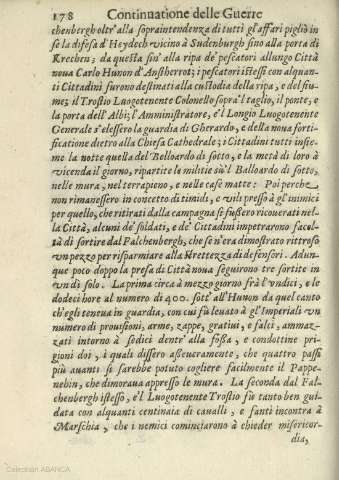 178 Continuatione delle Guerre
chenbergh oltr' alla sopraintendenza di tutti gl'affari pigliò in
se la difesa d'Heydech vicino à Sudenburgh sino alla porta di
Krechen; da questa sin' alla ripa de' pescatori allungo Città
noua Carlo Hunon d'Anstherrot; i pescatori istessi con alquan-
ti Cittadini furono destinati alla custodia della ripa, e del fiu-
me; il Trostio Luogotenente Colonello sopra'l taglio, il ponte, e
la porta dell'Albi; l'Amministratore, e'l Longio Luogotenente
Generale s'elessero la guardia di Gherardo, e della noua forti-
ficatione dietro alla Chiesa Cathedrale; i Cittadini tutti insie-
me la notte quella del Belloardo di sotto, e la metà di loro à
vicenda il giorno, ripartite le militie sù'l Balloardo di sotto,
nelle mura, nel terrapieno, e nelle case matte: Poi perche
non rimanessero in concetto di timidi, e vili presso à gl'inimici
per quello, che ritirati dalla campagna se fussero ricouerati nel-
la Città, alcuni de' soldati, e de' Cittadini impetrarono facol-
tà di sortire dal Falchenbergh, che se n'era dimostrato rittroso
vn pezzo per risparmiare alla strettezza di defensori. Adun-
que poco doppo la presa di Città noua seguirono tre sortite in
vn dì solo. La prima circa à mezzo giorno frà l'vndici, e le
dodeci hore al numero di 400. sott' all'Hunon da quel canto
ch'egli teneua in guardia, con cui fù leuato à gl'Imperiali vn
numero di prouisioni, arme, zappe, gratiui, e falci, ammaz-
zati intorno à sedici dentr' alla fossa, e condottine pri-
gioni doi, i quali dissero asseueramente, che quattro passi
più auanti si sarebbe potuto cogliere facilmente il Pappe-
nehin, che dimoraua appresso le mura. La seconda dal Fal-
chenbergh istesso, e'l Luogotenente Trostio fù tanto ben gui-
data con alquanti centinaia di caualli, e fanti incontra à
Marschia, che i nemici cominciarono à chieder misericor-
dia,
Colección ABANCA